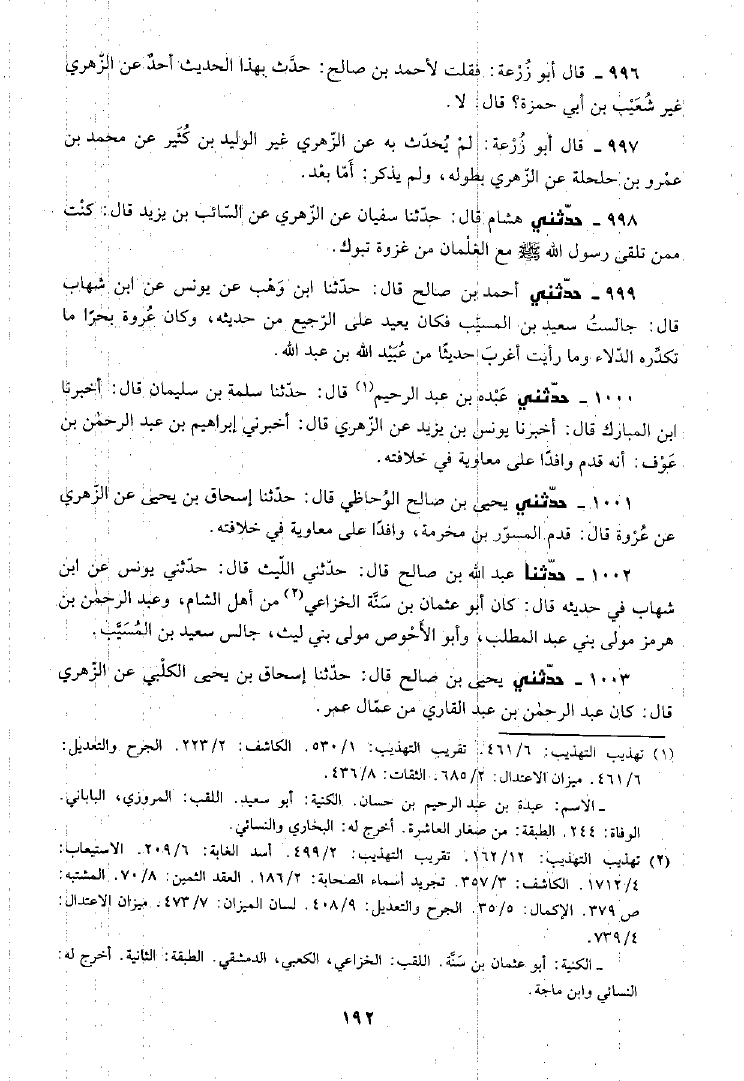 ٩٩٦ ـ قال أبو زُرْعة: فقلت لأحمد بن صالح: حدَّث بهذا الحديث أحدٌ عن الزّهري
غير شُعَيْب بن أبي حمزة؟ قال: لا.
٩٩٧ ـ قال أبو زُرْعة: لمْ يُحَدّث به عن الزّهري غير الوليد بن كُثَير عن محمد بن
عمْرو بن حلحلة عن الزّهري بطوله، ولم يذكر: أمّا بعْد.
٩٩٨ ـ حدّثني هشام قال: حدّثنا سفيان عن الزّهري عن السّائب بن يزيد قال: كنْت
ممن تلقى رسول الله ﷺ مع الغلْمان من غزوة تبوك.
٩٩٩ ـ حدّثني أحمد بن صالح قال: حدّثنا ابن وَهْب عن يونس عن ابن شهاب
قال: جالستُ سعيد بن المسيَّب فكان يعيد على الرّجيع من حديثه، وكان عُروة بحرًا ما
تكدِّره الدّلاء وما رأيت أغربَ حديثًا من عُبَيْد الله بن عبد الله.
١٠٠٠ ـ حدّثني عَبْده بن عبد الرحيم(١) قال: حدّثنا سلمة بن سليمان قال: أخبرنا
ابن المبارك قال: أخبرنا يونس بن يزيد عن الزّهري قال: أخبرني إبراهيم بن عبد الرحمٰن بن
عَوْف: أنه قدم وافدًا على معاوية في خلافته.
١٠٠١ ـ حدّثني يحيى بن صالح الوُحاظي قال: حدّثنا إسحاق بن يحيى عن الزّهري
عن عُرْوة قال: قدم المسوّر بن مخرمة، وافدًا على معاوية في خلافته.
١٠٠٢ ـ حدّثنا عبد الله بن صالح قال: حدّثني اللّيث قال: حدّثني يونس عن ابن
شهاب في حديثه قال: كان أبو عثمان بن سَنَّة الخزاعي(٢) من أهل الشام، وعبد الرحمٰن بن
هرمز مولى بني عبد المطلب، وأبو الأَحْوص مولى بني ليث، جالس سعيد بن المُسَيَّب.
١٠٠٣ ـ حدّثني يحيى بن صالح قال: حدّثنا إسحاق بن يحيى الكلْبي عن الزّهري
قال: كان عبد الرحمٰن بن عبد القاري من عمّال عمر.
(١) تهذيب التهذيب: ٤٦١/٦. تقريب التهذيب: ٥٣٠/١. الكاشف: ٢٢٣/٢. الجرح والتعديل:
٤٦١/٦. ميزان الاعتدال: ٦٨٥/٢. الثقات: ٤٣٦/٨.
ـ الاسم: عبدة بن عبد الرحيم بن حسان. الكنية: أبو سعيد. اللقب: المروزي، الباباني.
الوفاة: ٢٤٤. الطبقة: من صغار العاشرة. أخرج له: البخاري والنسائي.
(٢) تهذيب التهذيب: ١٦٢/١٢. تقريب التهذيب: ٤٩٩/٢. أسد الغابة: ٢٠٩/٦. الاستيعاب:
١٧١٢/٤. الكاشف: ٣٥٧/٣. تجريد أسماء الصحابة: ١٨٦/٢. العقد الثمين: ٧٠/٨. المشتبه:
ص ٣٧٩. الإكمال: ٣٥/٥. الجرح والتعديل: ٤٠٨/٩. لسان الميزان: ٤٧٣/٧. ميزان الاعتدال:
٧٣٩/٤.
ـ الكنية: أبو عثمان بن سَنَّة. اللقب: الخزاعي، الكعبي، الدمشقي. الطبقة: الثانية. أخرج له:
النسائي وابن ماجة.
١٩٢